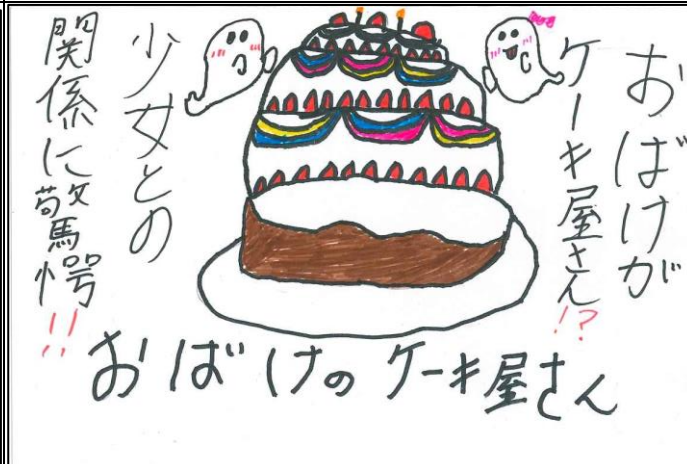 おばけが
ケーキ屋さん!?
少女との
関係に驚愕!!
おばけのケーキ屋さん